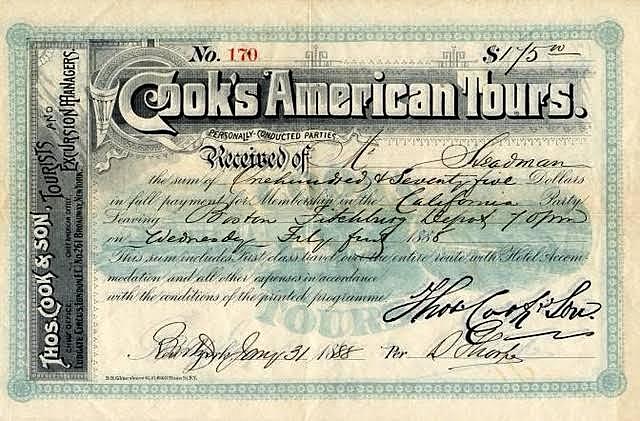 No. 170 $175 00
Cook's American Tours.
PERSONALLY-CONDUCTED PARTIES
Received of Mr Steadman
the sum of One hundred & Seventy five Dollars
in full payment for Membership in the California Party
Leaving Boston Fitchburg Depot 7 0 pm
on Wednesday Feby first 1888
This sum includes First class travel over the entire route with Hotel Accom-
modation and all other expenses in accordance
with the conditions of the printed programme
Thos Cook & Son.
Jany 31 1888 Per
TOURS
THOS. COOK & SON.
TOURISTS AND
EXCURSION MANAGERS.
CHIEF OFFICE
LUDGATE CIRCUS, LONDON, E.C.
CHIEF AMERICAN OFFICE
No. 261 BROADWAY, NEW YORK